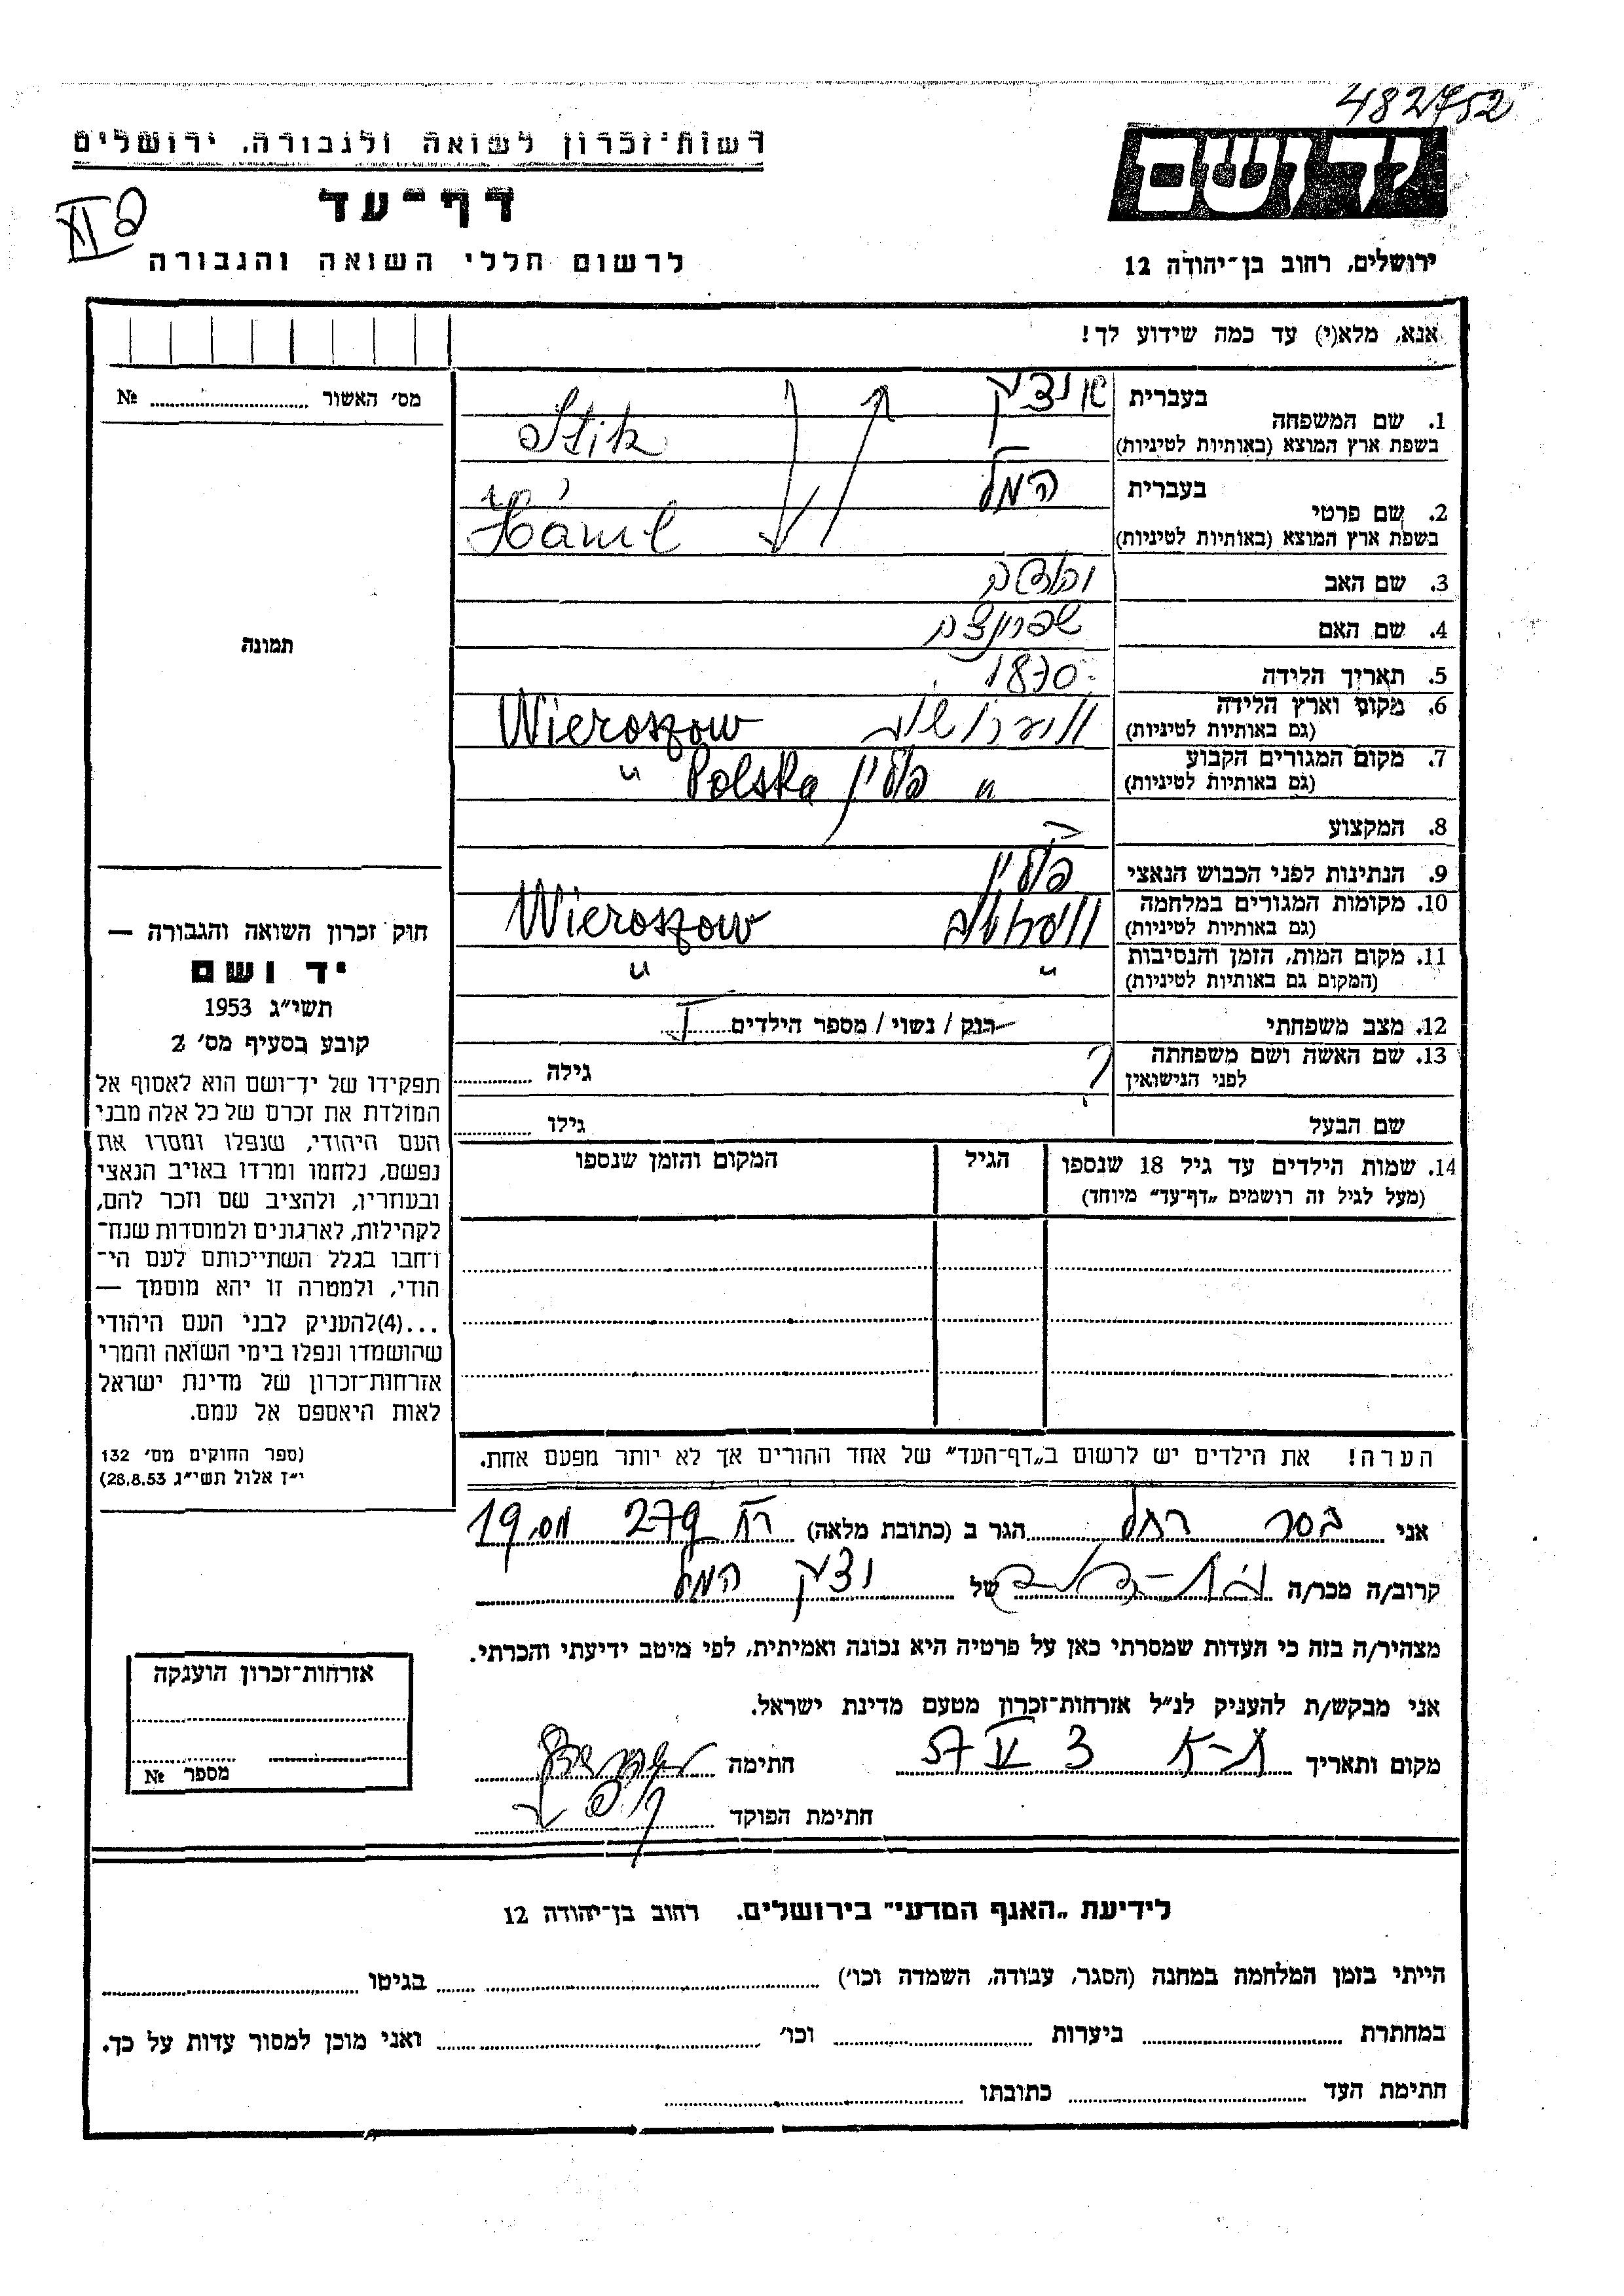 482752
רשות־זכרון לשואה ולגבורה, ירושלים
יד ושם
דף־עד
לרשום חללי השואה והגבורה
ירושלים, רחוב בן־יהודה 12
אנא, מלא(י) עד כמה שידוע לך!
מס׳ האשור № ........
תמונה
בעברית
1. שם המשפחה
בשפת ארץ המוצא (באותיות לטיניות)
בעברית המל
2. שם פרטי
בשפת ארץ המוצא (באותיות לטיניות)
3. שם האב
4. שם האם שפרינצה
5. תאריך הלידה 1870
6. מקום וארץ הלידה Wieroszow
(גם באותיות לטיניות)
7. מקום המגורים הקבוע " פולין Polska "
(גם באותיות לטיניות)
8. המקצוע
9. הנתינות לפני הכבוש הנאצי פולין
10. מקומות המגורים במלחמה Wieroszow
(גם באותיות לטיניות)
11. מקום המות, הזמן והנסיבות " "
(המקום גם באותיות לטיניות)
12. מצב משפחתי רוק / נשוי / מספר הילדים
13. שם האשה ושם משפחתה ? גילה
לפני הנישואין
שם הבעל גילו
14. שמות הילדים עד גיל 18 שנספו הגיל המקום והזמן שנספו
(מעל לגיל זה רושמים „דף־עד״ מיוחד)
חוק זכרון השואה והגבורה —
יד ושם
תשי״ג 1953
קובע בסעיף מס׳ 2
תפקידו של יד־ושם הוא לאסוף אל
המולדת את זכרם של כל אלה מבני
העם היהודי, שנפלו ומסרו את
נפשם, נלחמו ומרדו באויב הנאצי
ובעוזריו, ולהציב שם וזכר להם,
לקהילות, לארגונים ולמוסדות שנח־
רחבו בגלל השתייכותם לעם הי־
הודי, ולמטרה זו יהא מוסמך —
...(4)להעניק לבני העם היהודי
שהושמדו ונפלו בימי השואה והמרי
אזרחות־זכרון של מדינת ישראל
לאות היאספם אל עמם.
(ספר החוקים מס׳ 132
י״ז אלול תשי״ג 28.8.53)
הערה! את הילדים יש לרשום ב„דף־העד״ של אחד ההורים אך לא יותר מפעם אחת.
אני בסר רחל הגר ב (כתובת מלאה) רח 279 מס. 19
קרוב/ה מכר/ה של המל
מצהיר/ה בזה כי העדות שמסרתי כאן על פרטיה היא נכונה ואמיתית, לפי מיטב ידיעתי והכרתי.
אני מבקש/ת להעניק לנ״ל אזרחות־זכרון מטעם מדינת ישראל.
מקום ותאריך ת-א 3 V 57 חתימה
חתימת הפוקד
אזרחות־זכרון הוענקה
מספר №
לידיעת „האגף המדעי״ בירושלים. רחוב בן־יהודה 12
הייתי בזמן המלחמה במחנה (הסגר, עבודה, השמדה וכו׳) בגיטו
במחתרת ביערות וכו׳ ואני מוכן למסור עדות על כך.
חתימת העד כתובתו